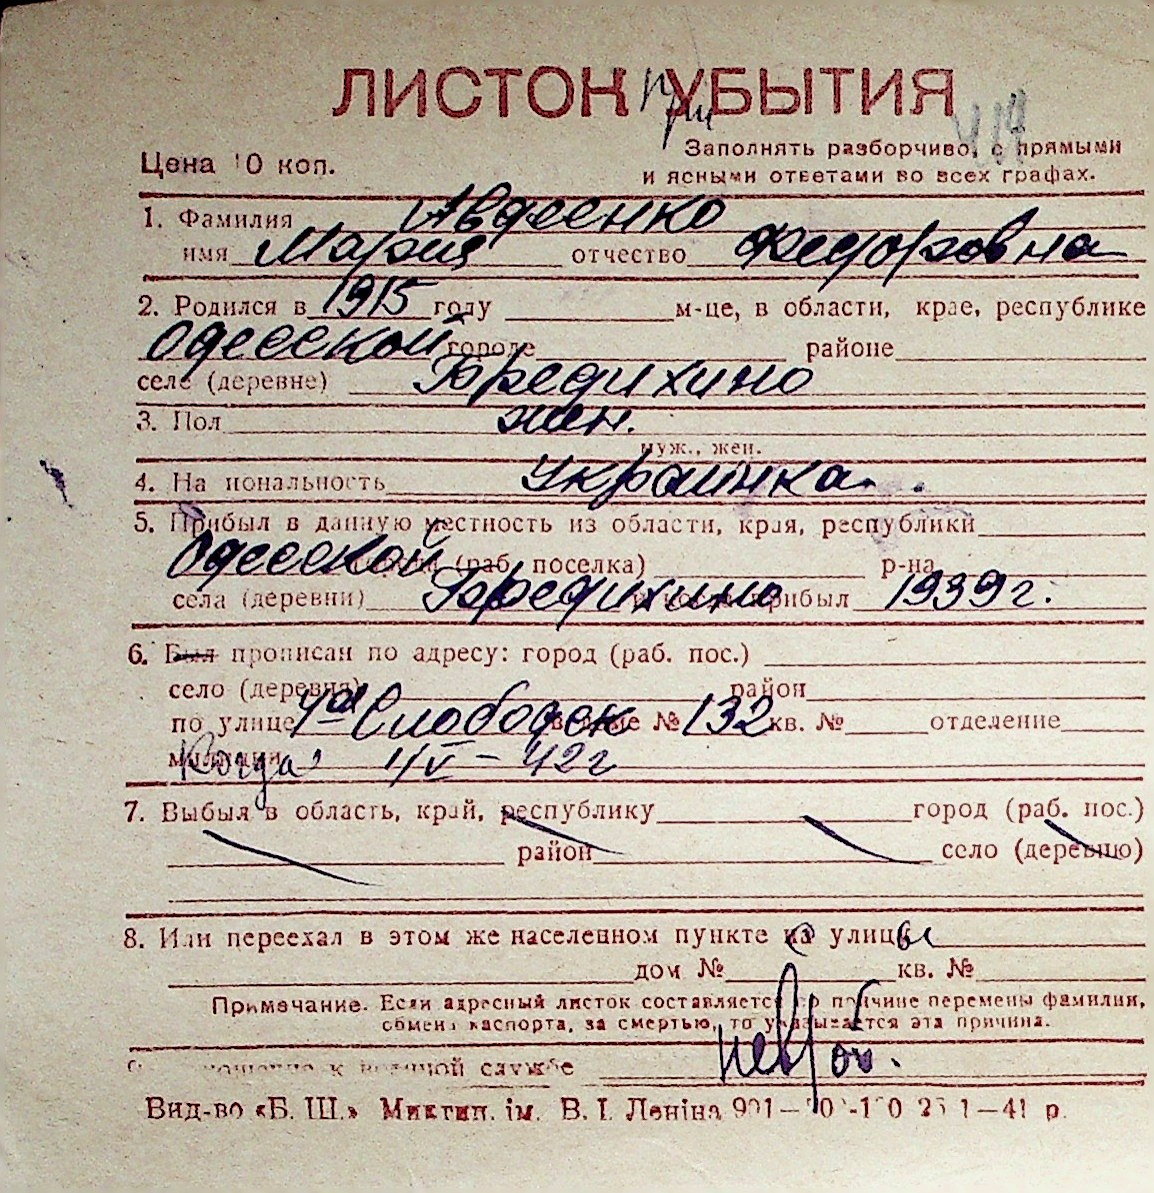 ЛИСТОК УБЫТИЯ
Цена 10 коп.
Заполнять разборчиво, с прямыми
и ясными ответами во всех графах.
1. Фамилия Авдеенко
имя Мария отчество Федоровна
2. Родился в 1915 году м-це, в области, крае, республике
Одесской городе районе
селе (деревне) Бредихино
3. Пол жен.
муж., жен.
4. Национальность Украинка.
5. Прибыл в данную местность из области, края, республики
Одесской (раб. поселка) р-на
села (деревни) Бредихино прибыл 1939 г.
6. Был прописан по адресу: город (раб. пос.)
село (деревня) район
по улице 4ая Слободск № 132 кв. № отделение
милиции Когда 4/V - 42 г
7. Выбыл в область, край, республику город (раб. пос.)
район село (деревню)
8. Или переехал в этом же населенном пункте на улицы
дом № кв. №
Примечание. Если адресный листок составляется по причине перемены фамилии,
обмена паспорта, за смертью, то указывается эта причина.
к военной службе
Вид-во «Б. Ш.» Миктип. ім. В. І. Леніна 1—41 р.